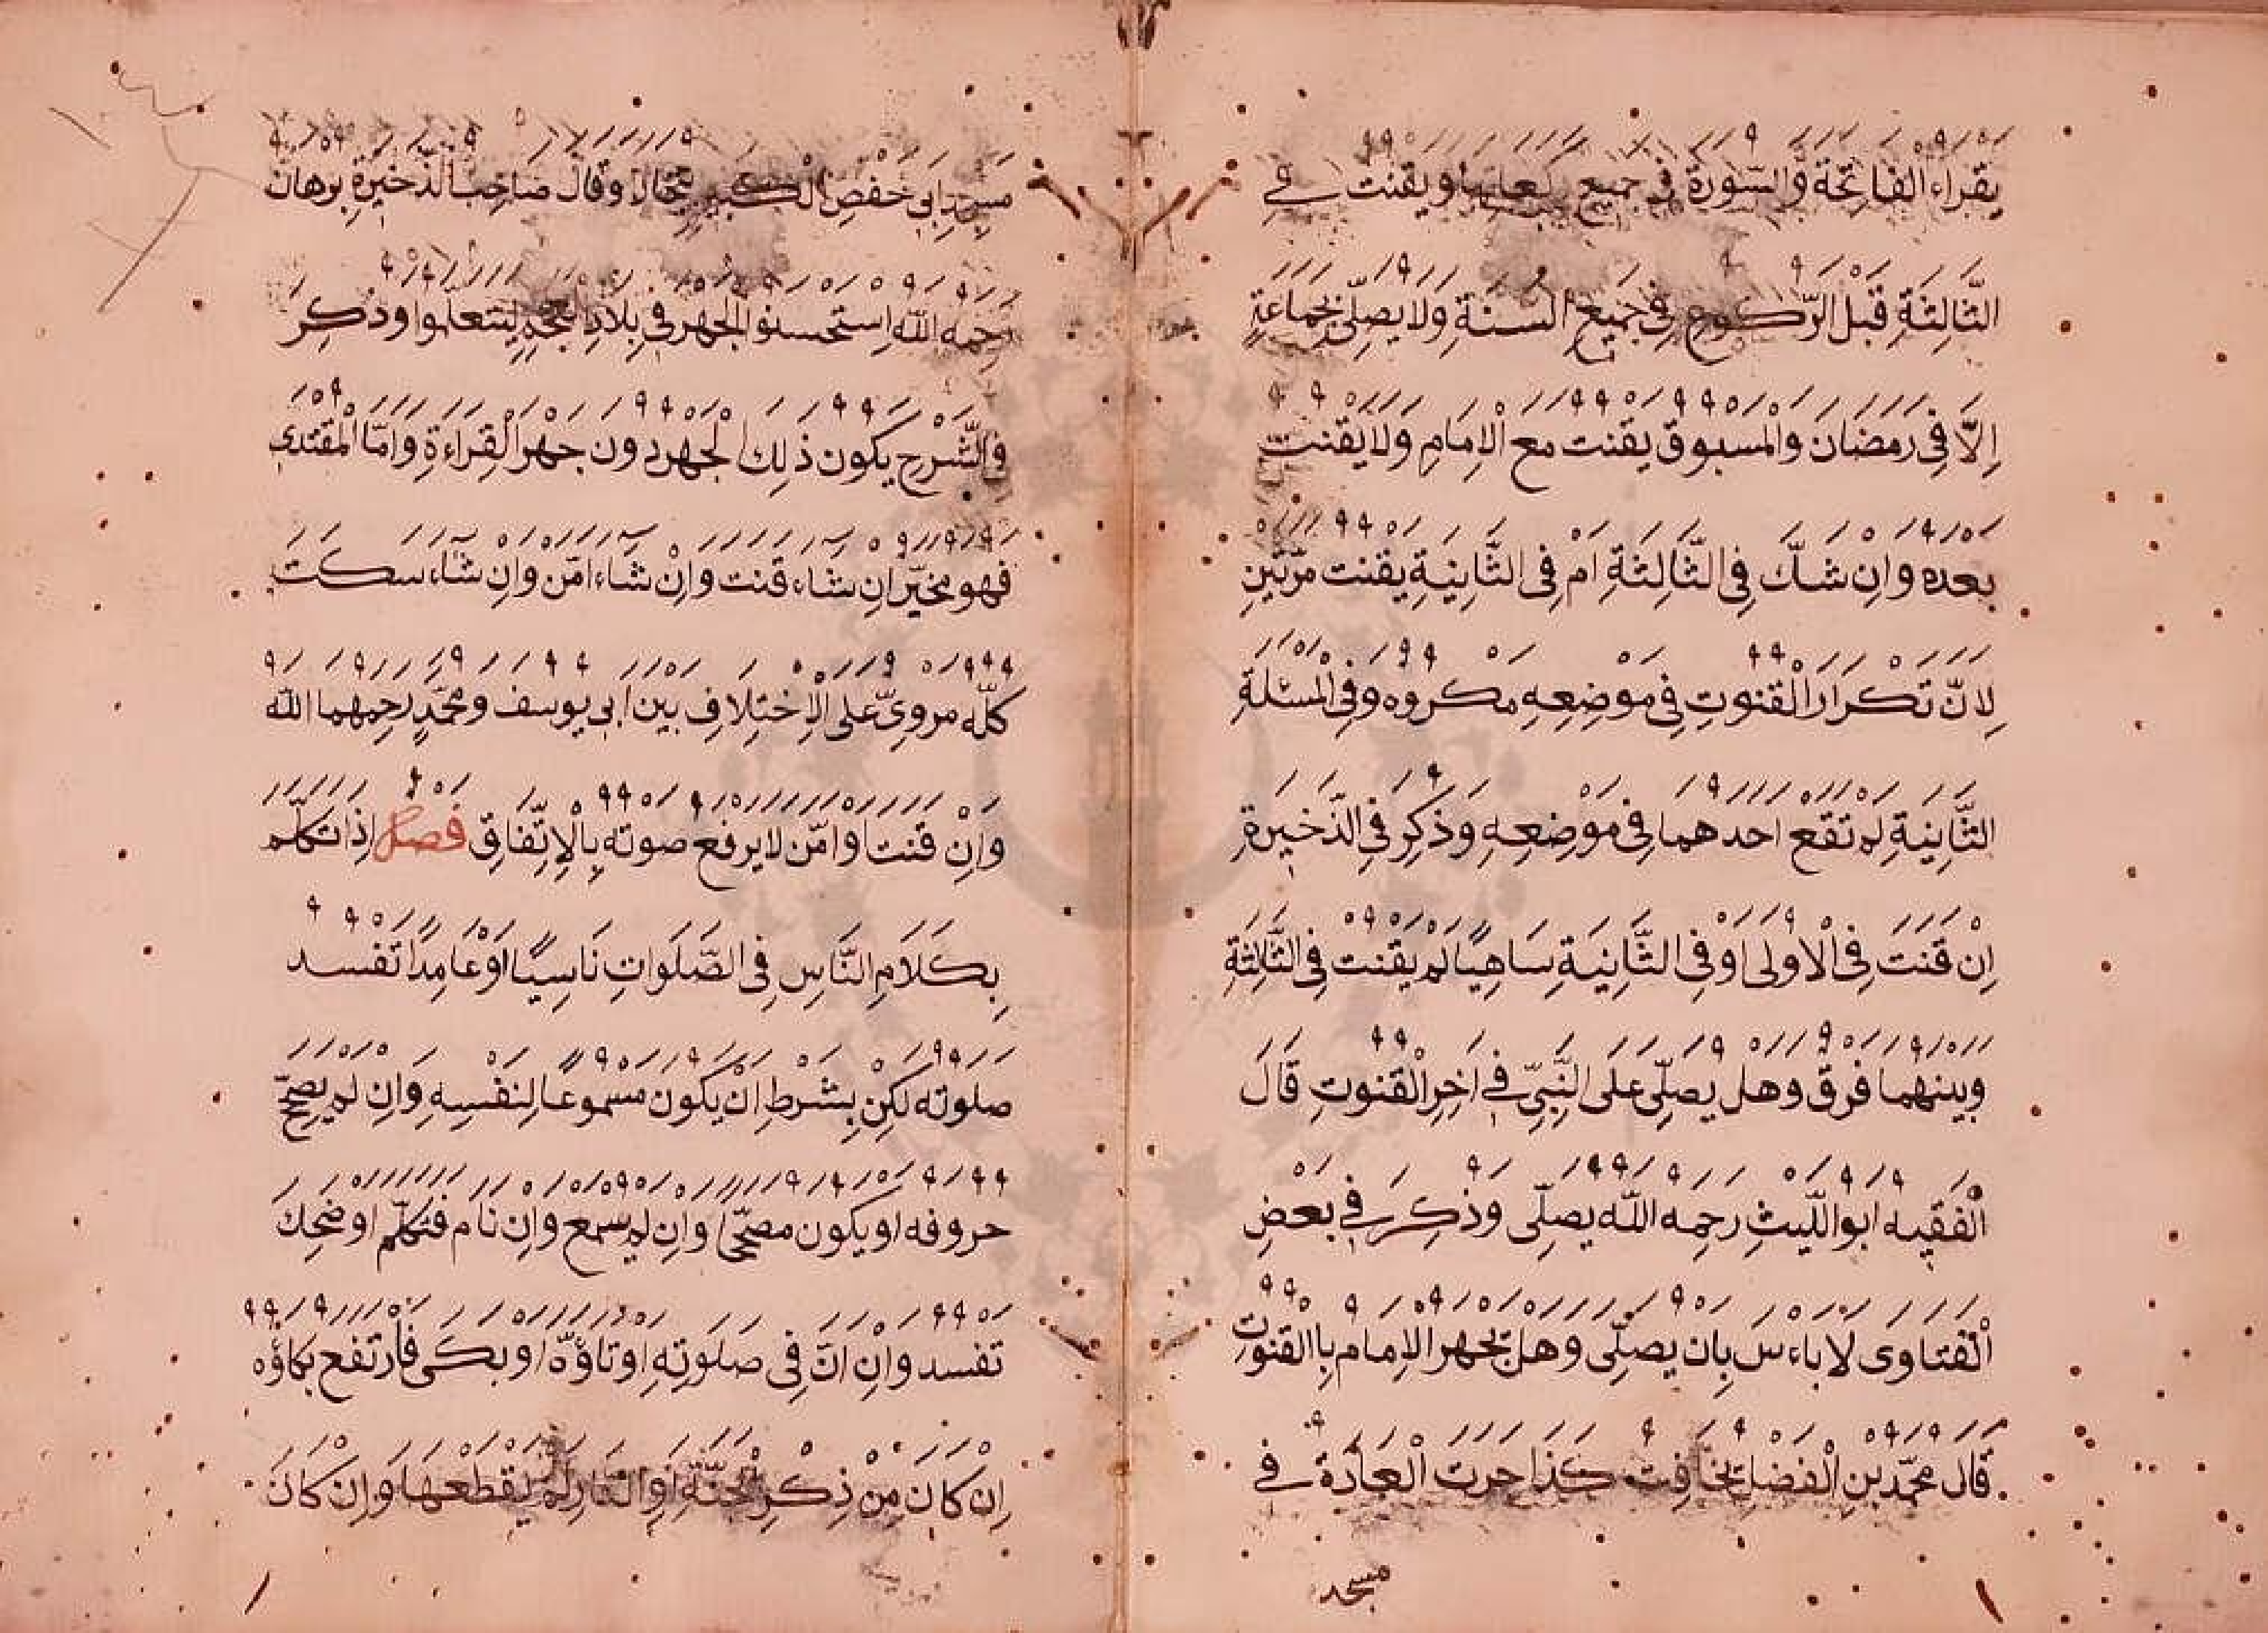 يقراء الفاتحة والسورة في جميع ركعاتها ويقنت في
الثالثة قبل الركوع في جميع السنة ولا يصلى بجماعة
الا في رمضان والمسبوق يقنت مع الامام ولا يقنت
بعده وان شك في الثالثة ام في الثانية يقنت مرتين
لان تكرار القنوت في موضعه مكروه وفي المسئلة
الثانية لم تقع احدهما في موضعه وذكر في الذخيرة
ان قنت في الاولى او في الثانية ساهيا لم يقنت في الثالثة
وبينهما فرق وهل يصلى على النبي في اخر القنوت قال
الفقيه ابو الليث رحمه الله يصلى وذكر في بعض
الفتاوى لا باءس بان يصلى وهل يجهر الامام باالقنوت
قال محمد بن الفضل يخافت كذا جرت العادة في
مسجد
مسجد ابي حفص الكبير بخارا وقال صاحب الذخيرة برهان
رحمه الله استحسنوا الجهر في بلاد العجم ليتعلموا وذكر
في الشرح يكون ذلك الجهر دون جهر القراءة واما المقتدى
فهو مخير ان شاء قنت وان شاء امن وان شاء سكت
كله مروى على الاختلاف بين ابي يوسف ومحمد رحمهما الله
وان قنت او امن لا يرفع صوته بالاتفاق فصل اذا تكلم
بكلام الناس في الصلوات ناسيا او عامدا تفسد
صلوته لكن بشرط ان يكون مسموعا لنفسه وان لم يصحح
حروفه او يكون مصححا وان لم يسمع وان نام فتكلم او ضحك
تفسد وان ان في صلوته او تاوه او بكى فارتفع بكاؤه
ان كان من ذكر الجنة او النار لم يقطعها وان كان